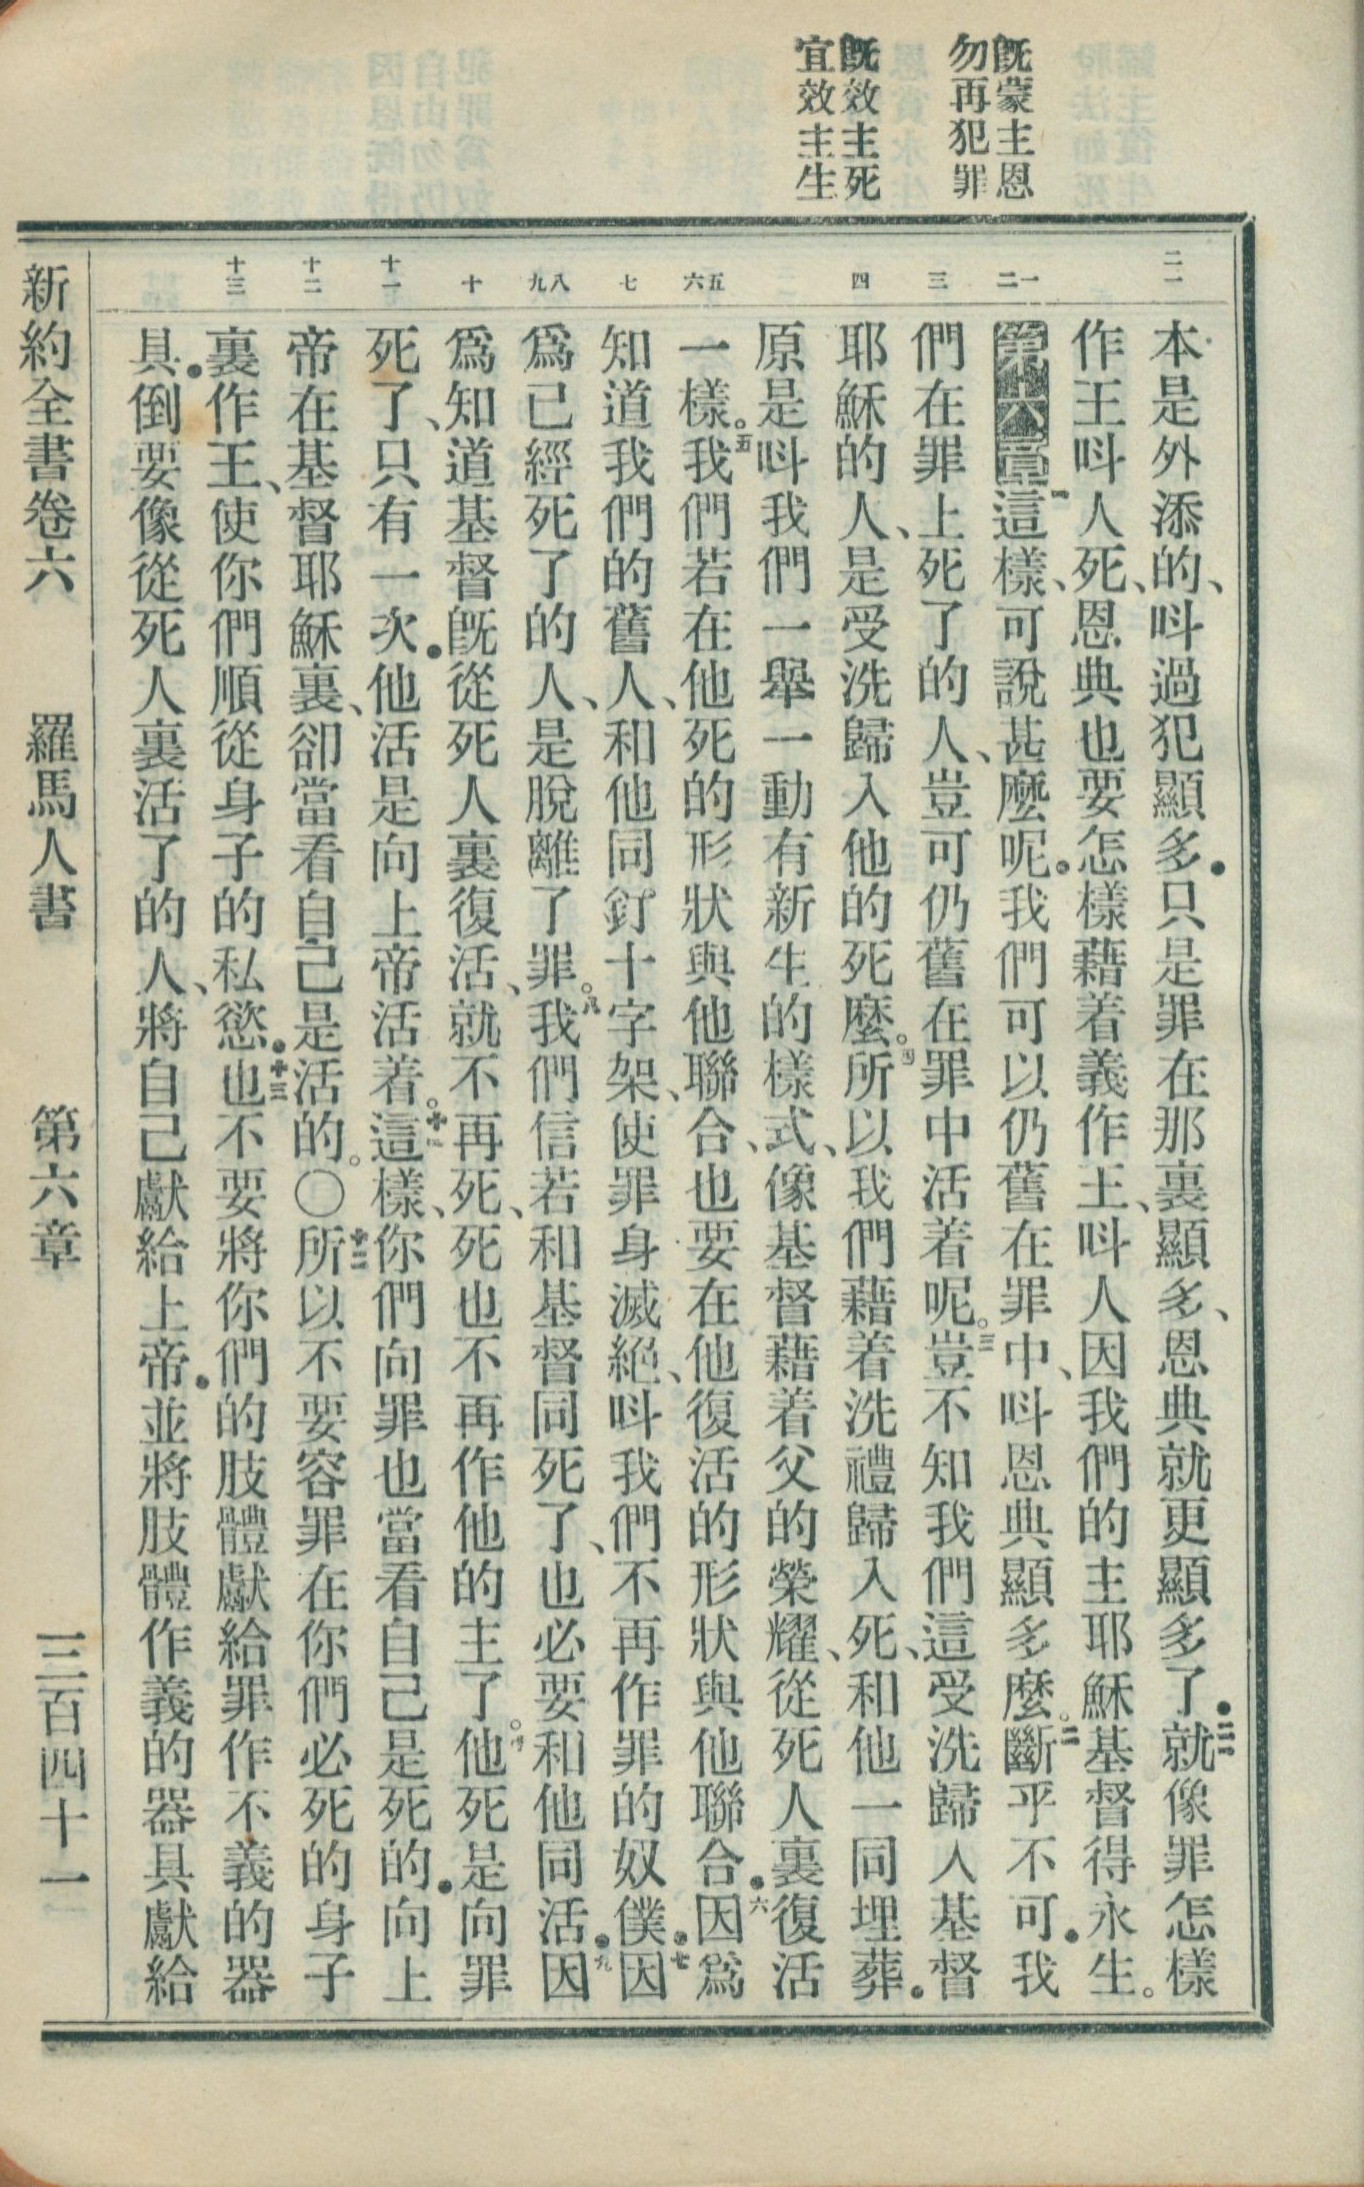 既蒙主恩
勿再犯罪
既效主死
宜效主生
二一
一
二
三
四
五
六
七
八
九
十
十一
十二
十三
本是外添的、呌過犯顯多．只是罪在那裏顯多、恩典就更顯多了．二一就像罪怎樣
作王呌人死、恩典也要怎樣藉着義作王、呌人因我們的主耶穌基督得永生。
第六章一這樣、可說甚麼呢．我們可以仍舊在罪中、呌恩典顯多麼。二斷乎不可．我
們在罪上死了的人、豈可仍舊在罪中活着呢。三豈不知我們這受洗歸入基督
耶穌的人、是受洗歸入他的死麼。四所以我們藉着洗禮歸入死、和他一同埋葬．
原是呌我們一舉一動有新生的樣式、像基督藉着父的榮耀、從死人裏復活
一樣。五我們若在他死的形狀與他聯合、也要在他復活的形狀與他聯合．六因爲
知道我們的舊人、和他同釘十字架、使罪身滅絕、呌我們不再作罪的奴僕．七因
爲已經死了的人、是脫離了罪。八我們信若和基督同死了、也必要和他同活．九因
爲知道基督既從死人裏復活、就不再死、死也不再作他的主了。十他死是向罪
死了、只有一次．他活是向上帝活着。十一這樣、你們向罪也當看自己是死的．向上
帝在基督耶穌裏、卻當看自己是活的。〇十二所以不要容罪在你們必死的身子
裏作王、使你們順從身子的私慾．十三也不要將你們的肢體獻給罪作不義的器
具．倒要像從死人裏活了的人、將自己獻給上帝．並將肢體作義的器具獻給
新約全書卷六　羅馬人書　第六章　三百四十一